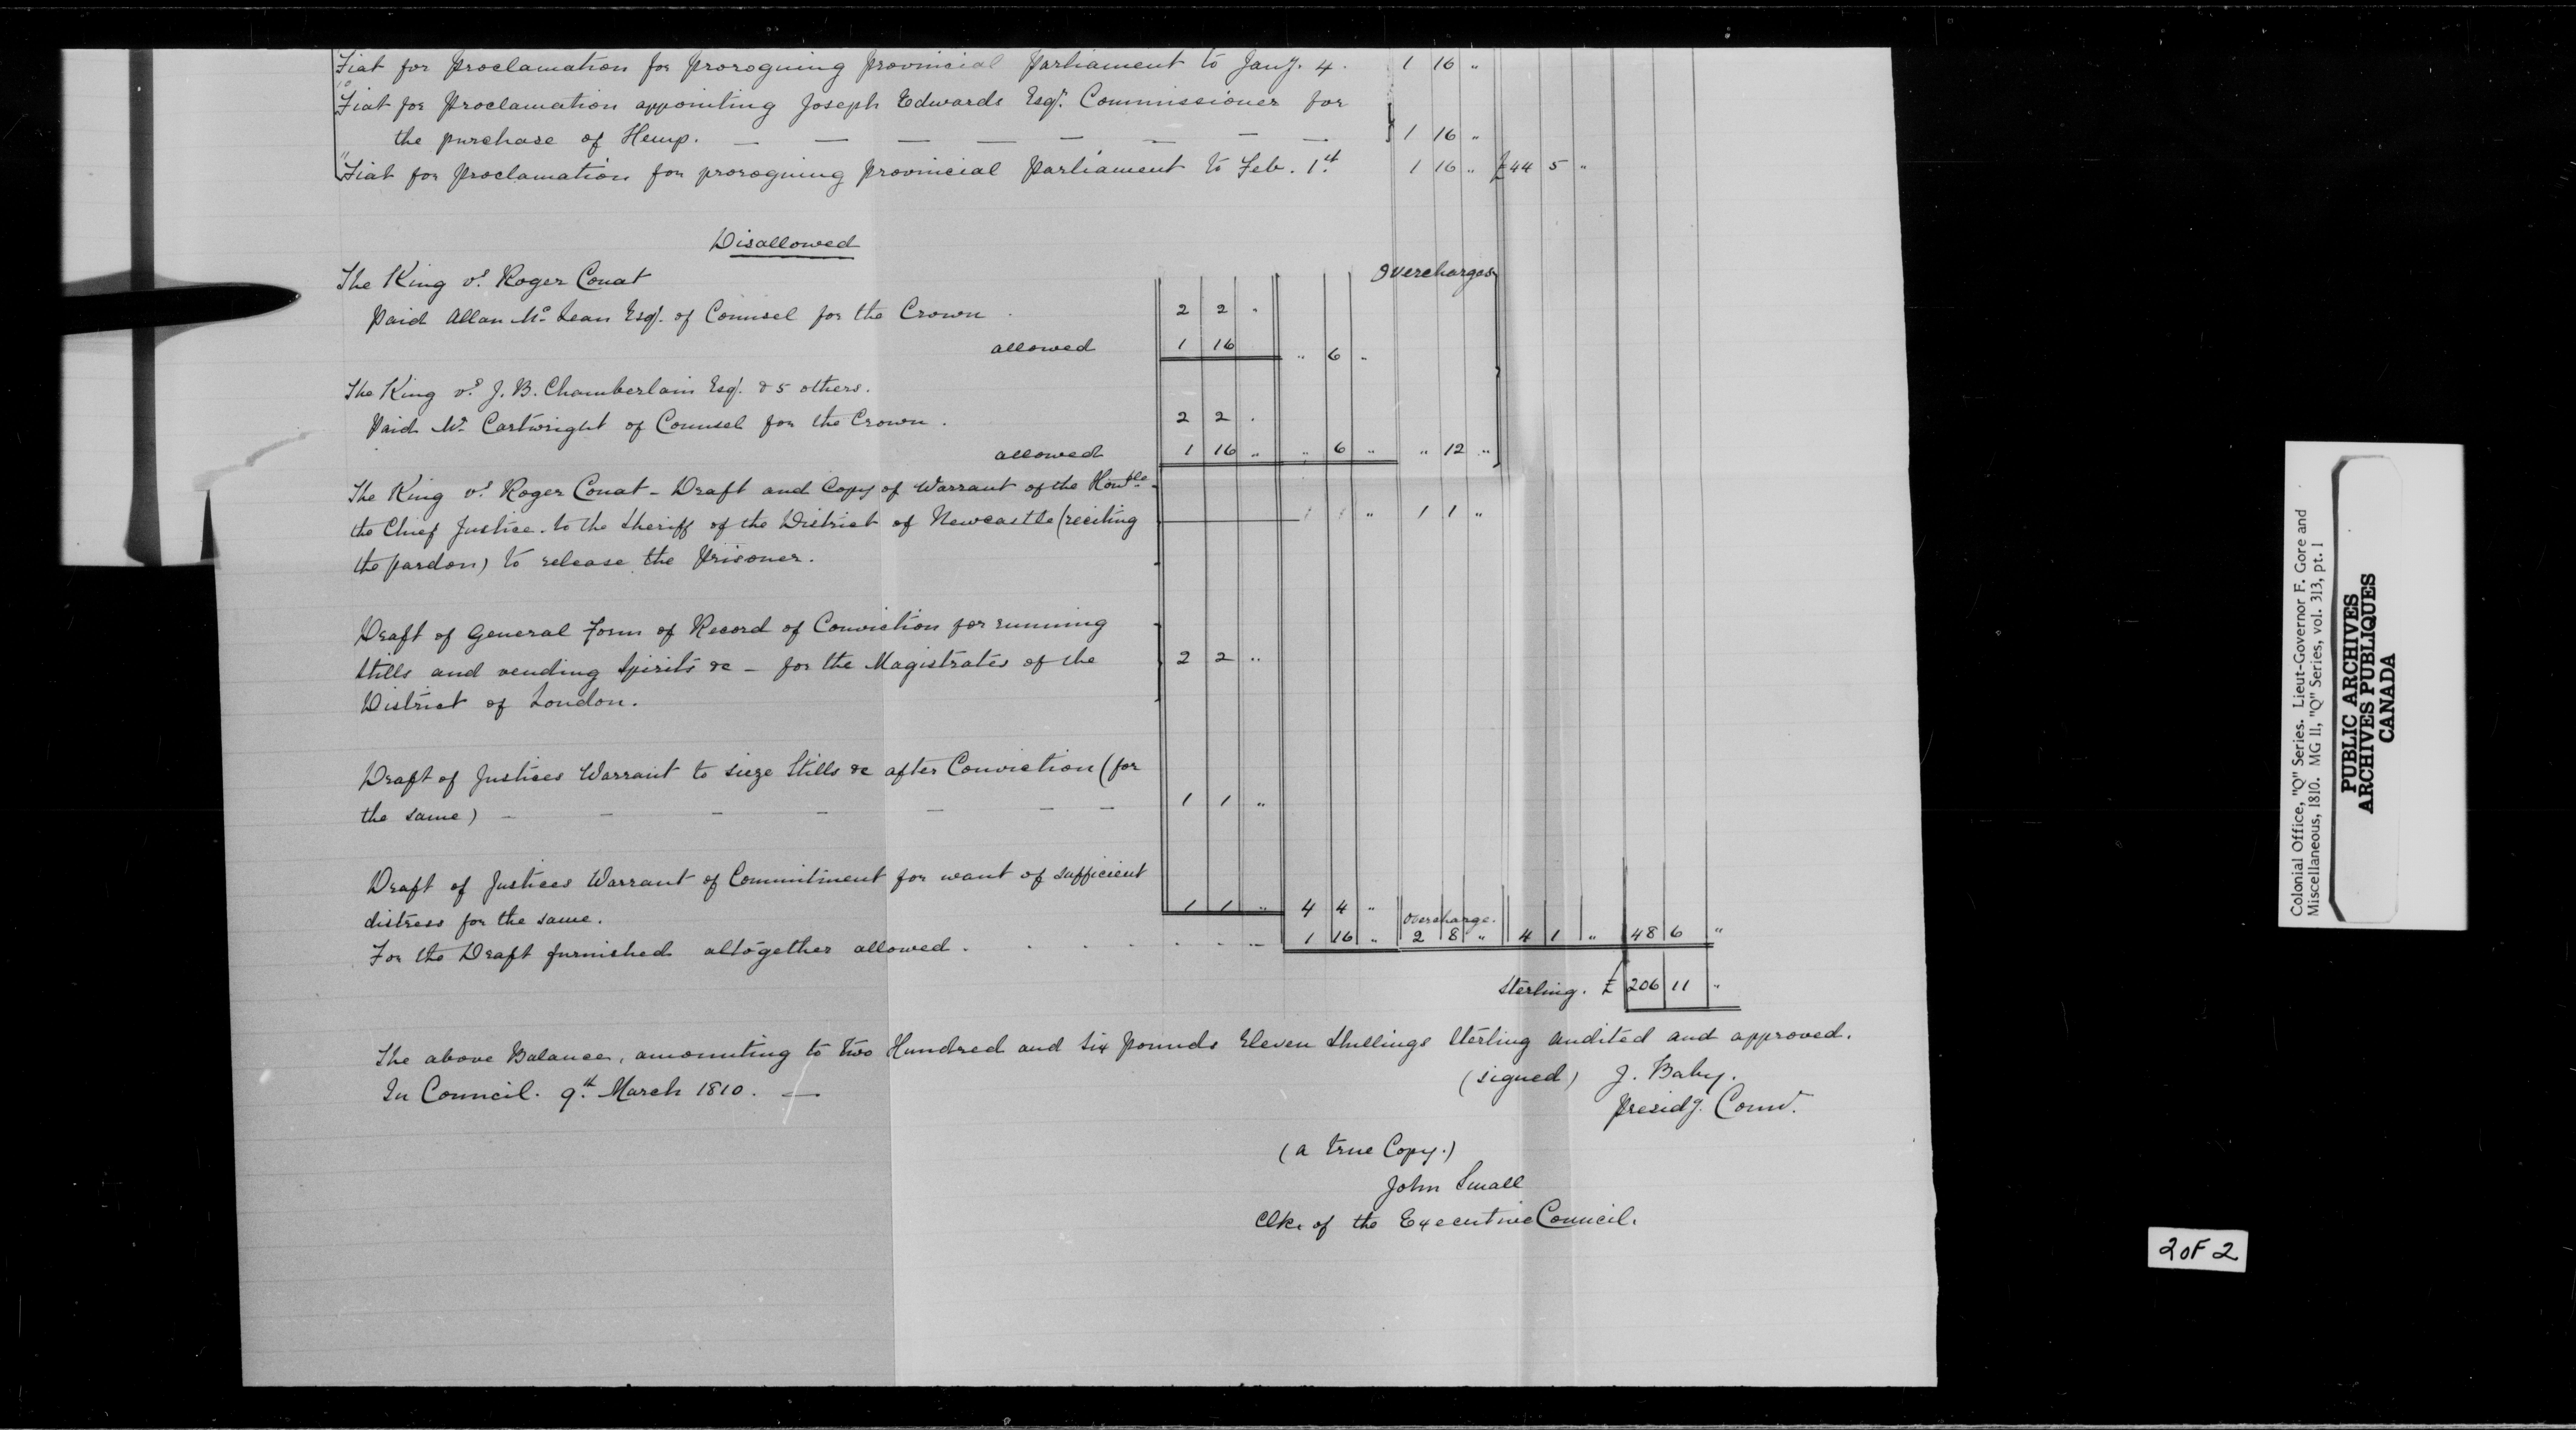 Fiat for Proclamation for proroguing Provincial Parliament to Jany. 4. 1 16 "
Fiat for Proclamation appointing Joseph Edwards Esqr. Commissioner for
the purchase of Hemp. — — — — — — — 1 16 "
Fiat for Proclamation for proroguing Provincial Parliament to Feb. 1st 1 16 " £44 5 "
Disallowed
Overcharges
The King vs. Roger Conat
Paid Allan Mc Lean Esq. of Counsel for the Crown . 2 2 "
allowed 1 16 " 6 "
The King vs. J. B. Chamberlain Esq. & 5 others.
Paid Mr. Cartwright of Counsel for the Crown . 2 2 .
allowed 1 16 " " 6 " " 12 "
The King vs. Roger Conat - Draft and Copy of Warrant of the Honble
the Chief Justice. to the Sheriff of the District of Newcastle (reciting 1 1 " 1 1 "
the pardon) to release the Prisoner.
Draft of General Form of Record of Conviction for running
Stills and vending Spirits &c - for the Magistrates of the 2 2 "
District of London.
Draft of Justices Warrant to sieze Stills &c after Conviction (for
the same) - - - - - - - 1 1 "
Draft of Justices Warrant of Commitment for want of sufficient
distress for the same. 1 1 " 4 4 " Overcharge.
For the Draft furnished altogether allowed . . . . . . . 1 16 " 2 8 " 4 1 " 48 6 "
Sterling. £ 206 11 "
The above Balance, amounting to two Hundred and six pounds Eleven Shillings Sterling Audited and approved.
In Council. 9th March 1810. —
(signed) J. Baby.
Presidg. Counr.
(a true Copy.)
John Small
Clk. of the Executive Council.
Colonial Office, "Q" Series. Lieut-Governor F. Gore and
Miscellaneous, 1810. MG 11, "Q" Series, vol. 313, pt. 1
PUBLIC ARCHIVES
ARCHIVES PUBLIQUES
CANADA
2 OF 2